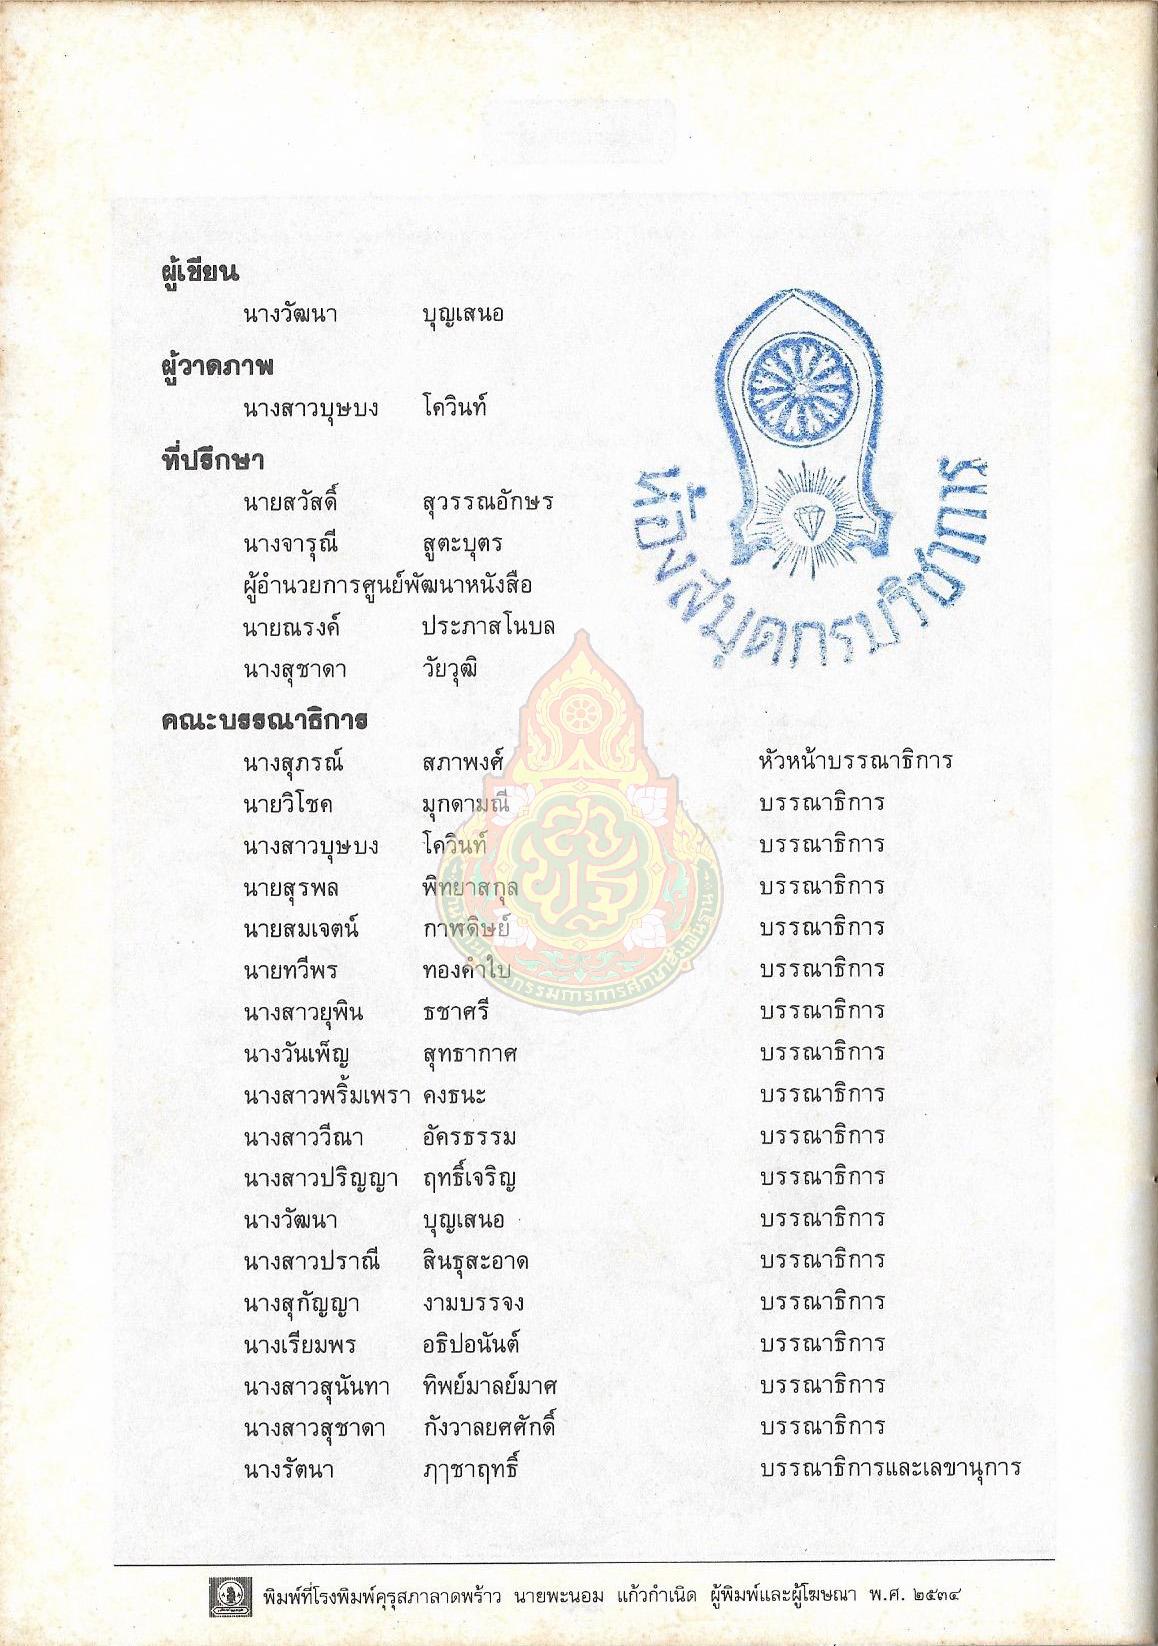 ผู้เขียน
นางวัฒนา บุญเสนอ
ผู้วาดภาพ
นางสาวบุษบง โควินท์
ที่ปรึกษา
นายสวัสดิ์ สุวรรณอักษร
นางจารุณี สูตะบุตร
ผู้อำนวยการศูนย์พัฒนาหนังสือ
นายณรงค์ ประภาสโนบล
นางสุชาดา วัยวุฒิ
ห้องสมุดกรมวิชาการ
คณะบรรณาธิการ
นางสุภรณ์ สภาพงศ์ หัวหน้าบรรณาธิการ
นายวิโชค มุกดามณี บรรณาธิการ
นางสาวบุษบง โควินท์ บรรณาธิการ
นายสุรพล พิทยาสกุล บรรณาธิการ
นายสมเจตน์ กาพดิษย์ บรรณาธิการ
นายทวีพร ทองคำใบ บรรณาธิการ
นางสาวยุพิน ธชาศรี บรรณาธิการ
นางวันเพ็ญ สุทธากาศ บรรณาธิการ
นางสาวพริ้มเพรา คงธนะ บรรณาธิการ
นางสาววีณา อัครธรรม บรรณาธิการ
นางสาวปริญญา ฤทธิ์เจริญ บรรณาธิการ
นางวัฒนา บุญเสนอ บรรณาธิการ
นางสาวปราณี สินธุสะอาด บรรณาธิการ
นางสุกัญญา งามบรรจง บรรณาธิการ
นางเรียมพร อธิปอนันต์ บรรณาธิการ
นางสาวสุนันทา ทิพย์มาลย์มาศ บรรณาธิการ
นางสาวสุชาดา กังวาลยศศักดิ์ บรรณาธิการ
นางรัตนา ฦๅชาฤทธิ์ บรรณาธิการและเลขานุการ
พิมพ์ที่โรงพิมพ์คุรุสภาลาดพร้าว นายพะนอม แก้วกำเนิด ผู้พิมพ์และผู้โฆษณา พ.ศ. ๒๕๓๔